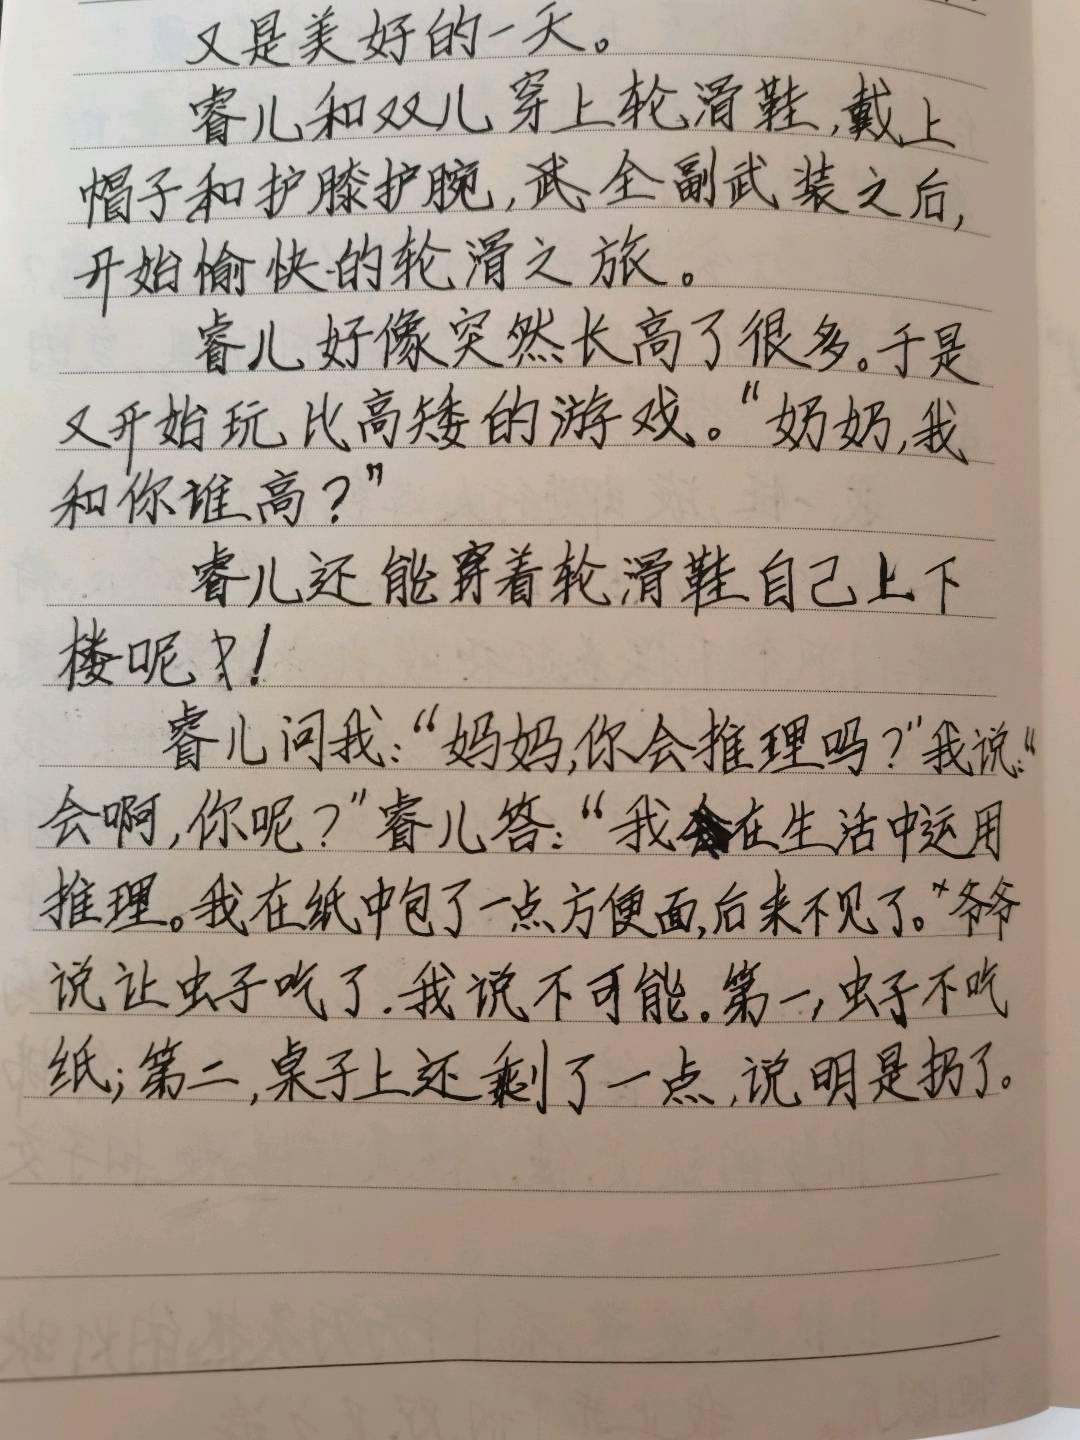 又是美好的一天。
睿儿和双儿穿上轮滑鞋,戴上
帽子和护膝护腕,武全副武装之后,
开始愉快的轮滑之旅。
睿儿好像突然长高了很多。于是
又开始玩比高矮的游戏。“奶奶,我
和你谁高?”
睿儿还能穿着轮滑鞋自己上下
楼呢?!
睿儿问我:“妈妈,你会推理吗?”我说:“
会啊,你呢?”睿儿答:“我在生活中运用
推理。我在纸中包了一点方便面,后来不见了。爷爷
说让虫子吃了.我说不可能.第一,虫子不吃
纸;第二,桌子上还剩了一点,说明是扔了。